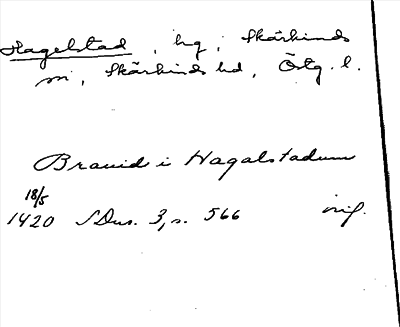 Hagelstad, hg, Skärkinds
sn, Skärkinds hd, Östg. l.
Brauid i Hagalstadum
18/5
1420 SDns. 3, s. 566 orig.